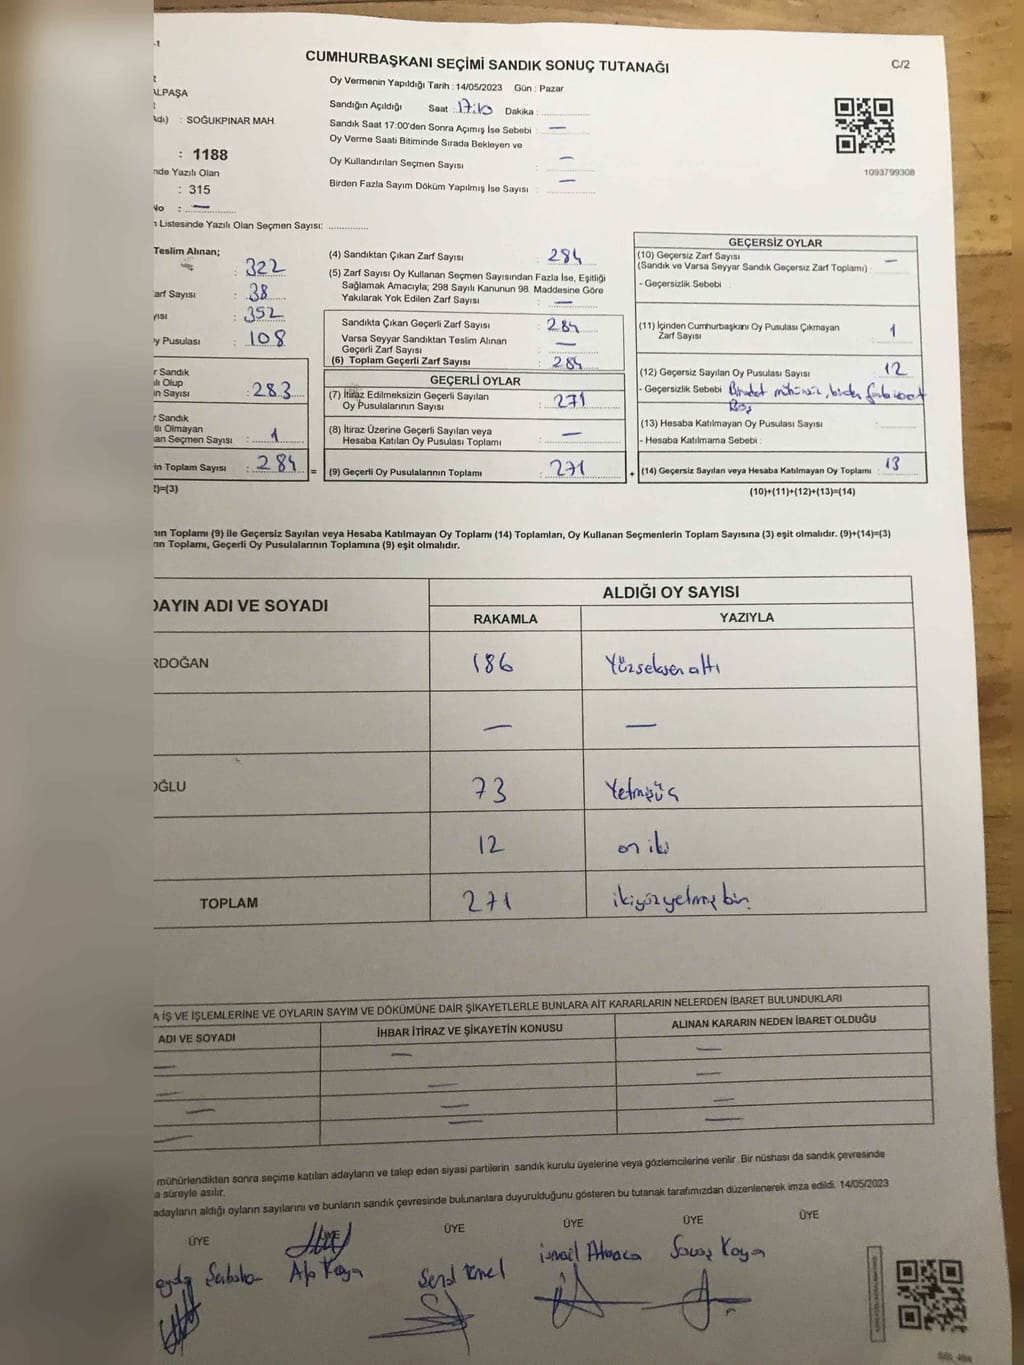 -1
CUMHURBAŞKANI SEÇİMİ SANDIK SONUÇ TUTANAĞI
C/2
Oy Vermenin Yapıldığı Tarih : 14/05/2023 Gün : Pazar
ALPAŞA
Sandığın Açıldığı Saat : 17:10 Dakika :
Adı) : SOĞUKPINAR MAH.
Sandık Saat 17:00'den Sonra Açımış İse Sebebi : —
Oy Verme Saati Bitiminde Sırada Bekleyen ve
Oy Kullandırılan Seçmen Sayısı : —
Birden Fazla Sayım Döküm Yapılmış İse Sayısı : —
1093799308
: 1188
nde Yazılı Olan
: 315
No : —
n Listesinde Yazılı Olan Seçmen Sayısı:
Teslim Alınan;
: 322
arf Sayısı : 38
yısı : 352
y Pusulası : 108
r Sandık
lı Olup
n Sayısı : 283
r Sandık
tlı Olmayan
an Seçmen Sayısı : 1
in Toplam Sayısı : 284
2)=(3)
(4) Sandıktan Çıkan Zarf Sayısı : 284
(5) Zarf Sayısı Oy Kullanan Seçmen Sayısından Fazla İse, Eşitliği
Sağlamak Amacıyla; 298 Sayılı Kanunun 98. Maddesine Göre
Yakılarak Yok Edilen Zarf Sayısı : —
Sandıkta Çıkan Geçerli Zarf Sayısı : 284
Varsa Seyyar Sandıktan Teslim Alınan
Geçerli Zarf Sayısı : —
(6) Toplam Geçerli Zarf Sayısı : 284
GEÇERLİ OYLAR
(7) İtiraz Edilmeksizin Geçerli Sayılan
Oy Pusulalarının Sayısı : 271
(8) İtiraz Üzerine Geçerli Sayılan veya
Hesaba Katılan Oy Pusulası Toplamı : —
= (9) Geçerli Oy Pusulalarının Toplamı : 271
GEÇERSİZ OYLAR
(10) Geçersiz Zarf Sayısı —
(Sandık ve Varsa Seyyar Sandık Geçersiz Zarf Toplamı) :
- Geçersizlik Sebebi :
(11) İçinden Cumhurbaşkanı Oy Pusulası Çıkmayan
Zarf Sayısı : 1
(12) Geçersiz Sayılan Oy Pusulası Sayısı : 12
- Geçersizlik Sebebi
Boş
(13) Hesaba Katılmayan Oy Pusulası Sayısı :
- Hesaba Katılmama Sebebi :
+ (14) Geçersiz Sayılan veya Hesaba Katılmayan Oy Toplamı : 13
(10)+(11)+(12)+(13)=(14)
nın Toplamı (9) ile Geçersiz Sayılan veya Hesaba Katılmayan Oy Toplamı (14) Toplamları, Oy Kullanan Seçmenlerin Toplam Sayısına (3) eşit olmalıdır. (9)+(14)=(3)
nn Toplamı, Geçerli Oy Pusulalarının Toplamına (9) eşit olmalıdır.
DAYIN ADI VE SOYADI
ALDIĞI OY SAYISI
RAKAMLA YAZIYLA
RDOĞAN 186 Yüzseksenaltı
— —
OĞLU 73 Yetmişüç
12 on iki
TOPLAM 271 ikiyüzyetmişbir
A İŞ VE İŞLEMLERİNE VE OYLARIN SAYIM VE DÖKÜMÜNE DAİR ŞİKAYETLERLE BUNLARA AİT KARARLARIN NELERDEN İBARET BULUNDUKLARI
ADI VE SOYADI İHBAR İTİRAZ VE ŞİKAYETİN KONUSU ALINAN KARARIN NEDEN İBARET OLDUĞU
— — —
— — —
— — —
— — —
mühürlendikten sonra seçime katılan adayların ve talep eden siyasi partilerin sandık kurulu üyelerine veya gözlemcilerine verilir. Bir nüshası da sandık çevresinde
a süreyle asılır.
adayların aldığı oyların sayılarını ve bunların sandık çevresinde bulunanlara duyurulduğunu gösteren bu tutanak tarafımızdan düzenlenerek imza edildi. 14/05/2023
ÜYE ÜYE ÜYE ÜYE ÜYE ÜYE
Alp Kaya
İsmail
Savaş Kaya